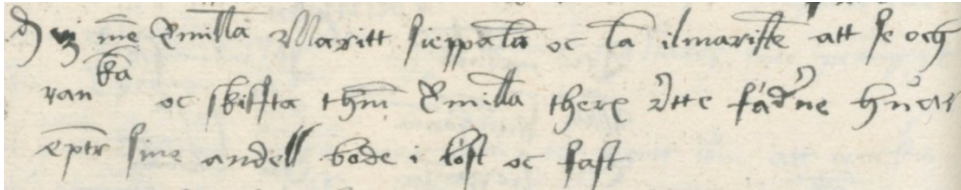 vj mē Emillā Maritt sieppalā oc lā ilmariste att se och
ranka oc skiffta thm̄ Emillā there rette fäderne huars
epter sine andell bode i löst oc fast